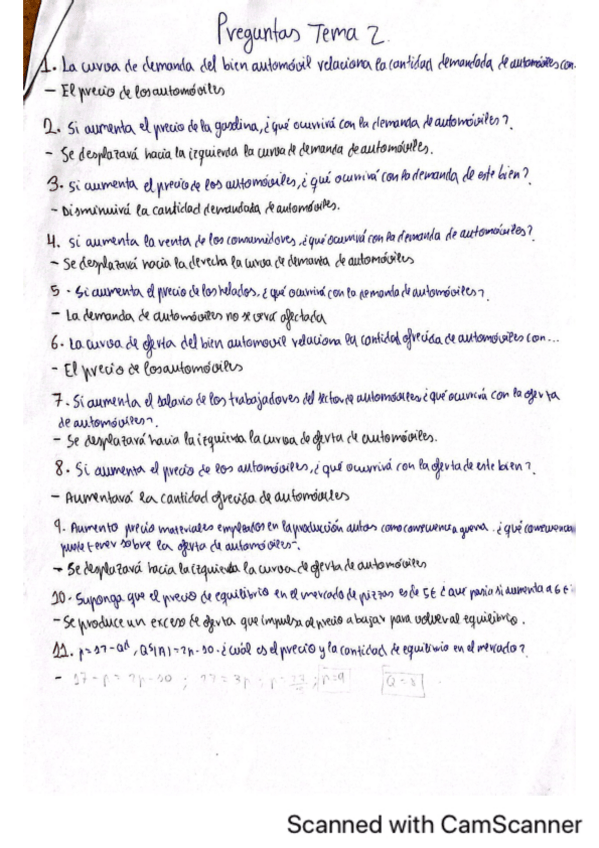 Preguntas Tema 2.
1. La curva de demanda del bien automóvil relaciona la cantidad demandada de automóviles con.
- El precio de los automóviles
2. Si aumenta el precio de la gasolina, ¿qué ocurrirá con la demanda de automóviles?.
- Se desplazará hacia la izquierda la curva de demanda de automóviles.
3. Si aumenta el precio de los automóviles, ¿qué ocurrirá con la demanda de este bien?
- Disminuirá la cantidad demandada de automóviles.
4. Si aumenta la venta de los consumidores, ¿qué ocurrirá con la demanda de automóviles?
- Se desplazará hacia la derecha la curva de demanda de automóviles
5. Si aumenta el precio de los helados, ¿qué ocurrirá con la demanda de automóviles?
- La demanda de automóviles no se verá afectada
6. La curva de oferta del bien automovil relaciona la cantidad ofrecida de automóviles con...
- El precio de los automóviles
7. Si aumenta el salario de los trabajadores del sector de automóviles ¿qué ocurrirá con la oferta
de automóviles?.
- Se desplazará hacia la izquierda la curva de oferta de automóviles.
8. Si aumenta el precio de los automóviles, ¿qué ocurrirá con la oferta de este bien?.
- Aumentará la cantidad ofrecida de automóviles
9. Aumento precio materiales empleados en la producción autos como consecuencia guerra. ¿qué consecuencia
puede tener sobre la oferta de automóviles?.
- Se desplazará hacia la izquierda la curva de oferta de automóviles
10. Suponga que el precio de equilibrio en el mercado de pizzas es de 5€ ¿que pasa si aumenta a 6€?
- Se produce un exceso de oferta que impulsa al precio a bajar para volver al equilibrio.
11. p=17-Qd, Qs(A)=2p-10. ¿cuál es el precio y la cantidad de equilibrio en el mercado?
- 17-p=2p-10; 27=3p; p=27/3; p=9 Q=8
Scanned with CamScanner